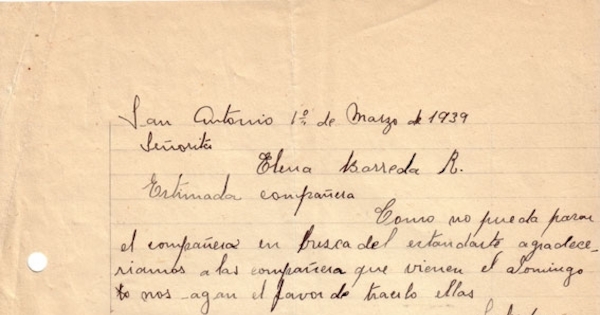 San Antonio 1º de Marzo de 1939
Señorita
Elena Barreda R.
Estimada compañera
Como no pueda pasar
el compañera en busca del estandarte agradece-
riamos a las compañera que vienen el Domingo
nos agan el favor de traerlo ellas